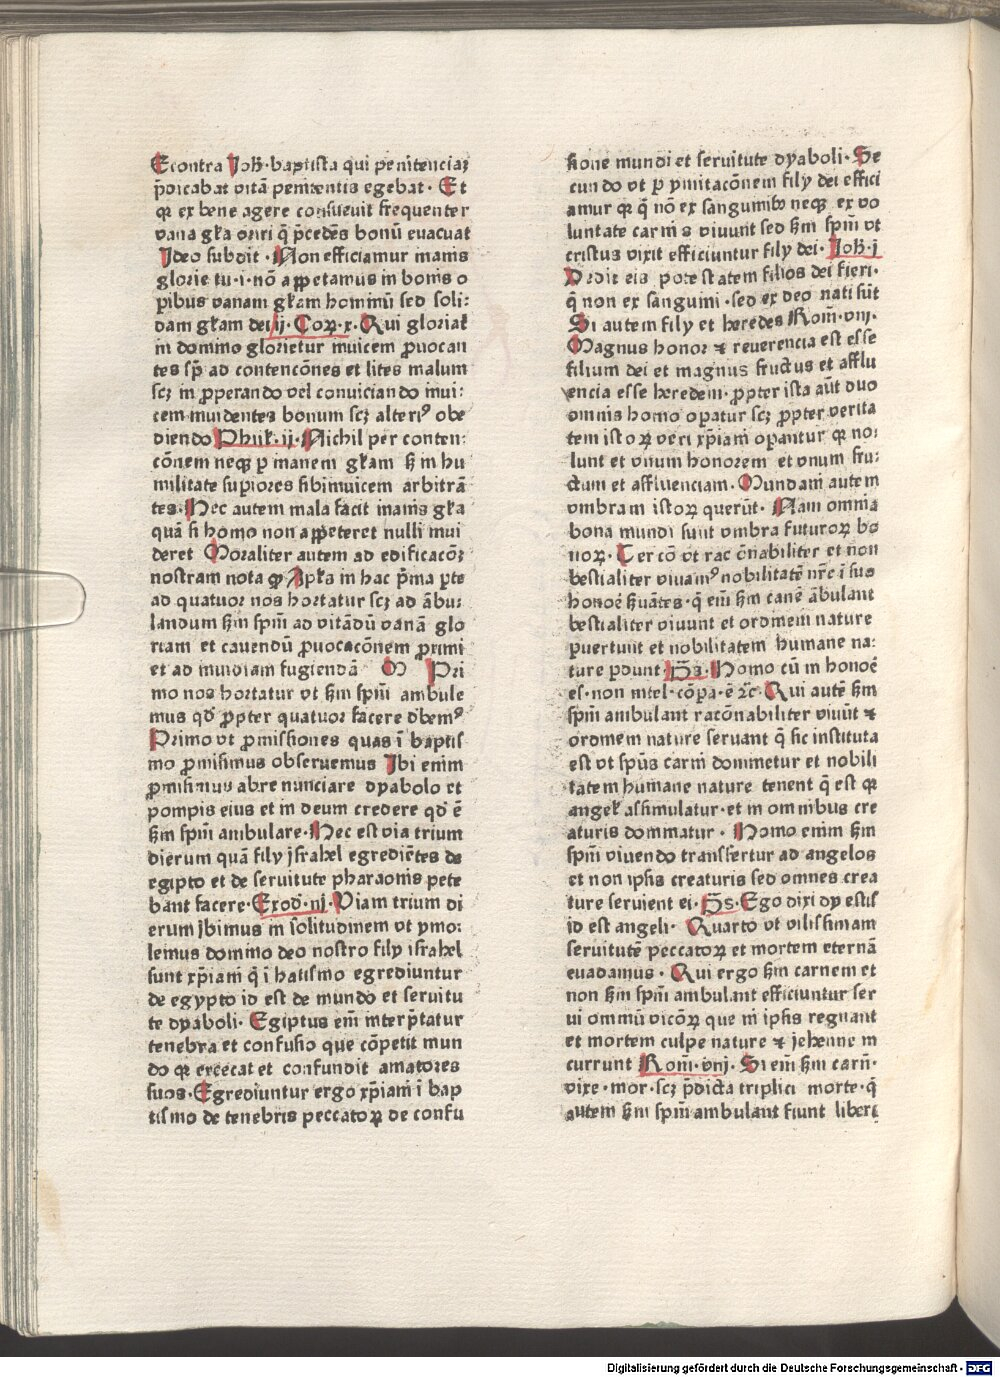 Econtra Joh̄·baptista qui penitenciaꝫ
p̄dicabat vitā penitentis egebat· Et
qꝛ ex bene agere consueuit frequenter
vana gl̄a oriri q̄ p̄cedēs bonū euacuat
Jdeo subdit · Non efficiamur inanis
glorie tu·i·nō appetamus in bonis o
pibus vanam gl̄am hominū sed soli:
dam gl̄am dei ij·Coꝝ·x·Qui gloriat̄
in domino glorietur inuicem ꝓuocan
tes sꝫ ad contencōnes et lites malum
scꝫ in ꝓperando vel conuiciando inui:
cem inuidentes bonum scꝫ alteriꝰ obe
diendo Phil̄·ij·Nichil per conten:
cōnem neqꝫ p inanem gl̄am sꝫ in hu
militate supiores sibiinuicem arbitrā
tes·Hec autem mala facit inanis gl̄a
quā si homo non appeteret nulli inui
deret Moraliter autem ad edificacōꝫ
nostram nota qꝙ Apl̄s in hac p̄ma pte
ad quatuor nos hortatur scꝫ ad ābu:
landum s̄m spm̄ ad vitādū vanā glo
riam et cauendū ꝓuocacōnem ꝓximi
et ad inuidiam fugiendā M Pri
mo nos hortatur vt s̄m spm̄ ambule
mus qd̄ ꝓpter quatuor facere d̄bemꝰ
Primo vt ꝓmissiones quas ī baptis
mo ꝓmisimus obseruemus Jbi enim
ꝓmisimus abrenunciare dyabolo et
pompis eius et in deum credere qd̄ ē
s̄m spm̄ ambulare·Hec est via trium
dierum quā fily jsrahel egrediētes de
egipto et de seruitute pharaonis pete
bant facere·Exod̄·iij·Viam trium di
erum jbimus in solitudinem vt ymo:
lemus domino deo nostro fily israhel
sunt xp̄iani q̄ ī batismo egrediuntur
de egypto id est de mundo et seruitu
te dyaboli· Egiptus em̄ interp̄tatur
tenebra et confusio que cōpetit mun
do qꝛ excecat et confundit amatores
suos·Egrediuntur ergo xp̄iani ī bap
tismo de tenebris peccatoꝝ de confu
sione mundi et seruitute dyaboli·Se
cundo vt p ymitacōnem fily dei effici
amur qꝛ q̄ nō ex sanguinibꝰ neqꝫ ex vo
luntate carnis viuunt sed s̄m spm̄ vt
cristus vixit efficiuntur fily dei·Joh̄·j
Dedit eis potestatem filios dei fieri·
q̄ non ex sanguini·sed ex deo nati sūt
Si autem fily et heredes Rom̄·viij·
Magnus honor ⁊ reuerencia est esse
filium dei et magnus fructus et afflu
encia esse heredem·ꝓpter ista aūt duo
omnis homo opatur scꝫ ꝓpter verita
tem istoꝝ veri xp̄iani opantur qꝛ no:
lunt et vnum honorem et vnum fru:
ctum et affluenciam·Mundani autem
vmbram istoꝝ querūt· Nam omnia
bona mundi sunt vmbra futuroꝝ bo
noꝝ·Tercō vt racōnabiliter et non
bestialiter viuamꝰ nobilitatē nr̄e ī suo
honoē s̄uātes·q̄ em̄ s̄m canē ābulant
bestialiter viuunt et ordinem nature
puertunt et nobilitatem humane na:
ture pdunt·P̄s·Homo cū in honoē
es·non intel·cōpa·ē ⁊c̄·Qui autē s̄m
spm̄ ambulant racōnabiliter viuūt ⁊
ordinem nature seruant q̄ sic instituta
est vt spūs carni dominetur et nobili
tatem humane nature tenent q̄ est qꝛ
angel̄ assimulatur·et in omnibus cre
aturis dominatur · Homo enim s̄m
spm̄ viuendo transfertur ad angelos
et non ipsis creaturis sed omnes crea
ture seruient ei·P̄s·Ego dixi dy estis
id est angeli· Quarto vt vilissimam
seruitutē peccatoꝝ et mortem eternā
euadamus · Qui ergo s̄m carnem et
non s̄m spm̄ ambulant efficiuntur ser
ui omniū vicōꝝ que in ipsis regnant
et mortem culpe nature ⁊ jehenne in
currunt Rom̄·viij·Si em̄ s̄m carn̄·
vixe·mor·scꝫ p̄dicta triplici morte·q̄
autem s̄m spm̄ ambulant fiunt liberi
Digitalisierung gefördert durch die Deutsche Forschungsgemeinschaft - DFG